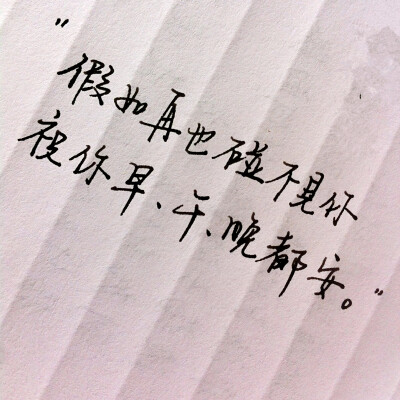 "假如再也碰不见你
祝你早、午、晚都安。"